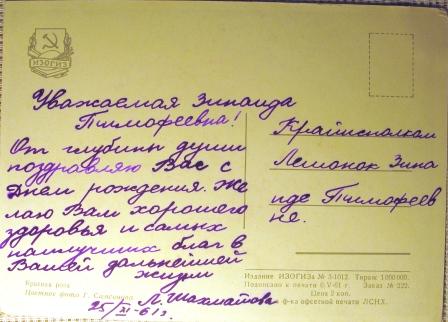 ИЗОГИЗ
Уважаемая Зинаида
Тимофеевна!
От глубины души
поздравляю Вас с
Днем рождения. Же
лаю Вам хорошего
здоровья и самых
наилучших благ в
Вашей дальнейшей
жизни
М. Шахматова
25/XI-61г.
Крайисполком
Лемонок Зина
иде Тимофеев
не.
Красная роза
Цветное фото Г. Самсонова
Издание ИЗОГИЗа № 3-1012. Тираж 1 000 000.
Подписано к печати 6/V-61 г.
Цена 2 коп. Заказ № 222.
ф-ка офсетной печати ЛСНХ.